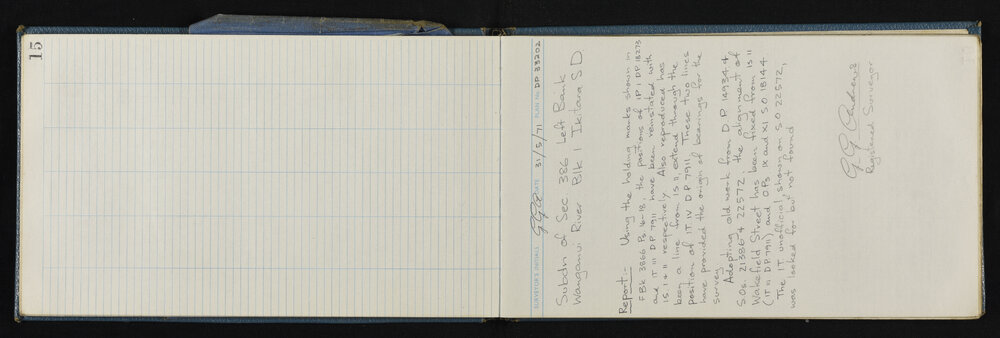 15
SURVEYOR'S INITIALS GGA DATE 31/5/71 PLAN No. DP 33202
Subdn of Sec 386 Left Bank
Wanganui River Blk I Ikitara SD
Report:- Using the holding marks shown in
FBk 3866 Ps 16-18, the positions of IP I DP 18273
and IT III DP 7911 have been reinstated with
IS I & II respectively. Also reproduced has
been a line from IS II, extend through the
position of IT IV DP 7911. These two lines
have provided the origin of bearings for the
survey.
Adopting old work from DP 14934 &
S.Os 21386 & 22572, the alignment of
Wakefield Street has been fixed from IS II
(IT III DP 7911) and OPs IX and XI SO 18144
The IT unofficial, shown on SO 22572,
was looked for but not found
G G Andrews
Registered Surveyor